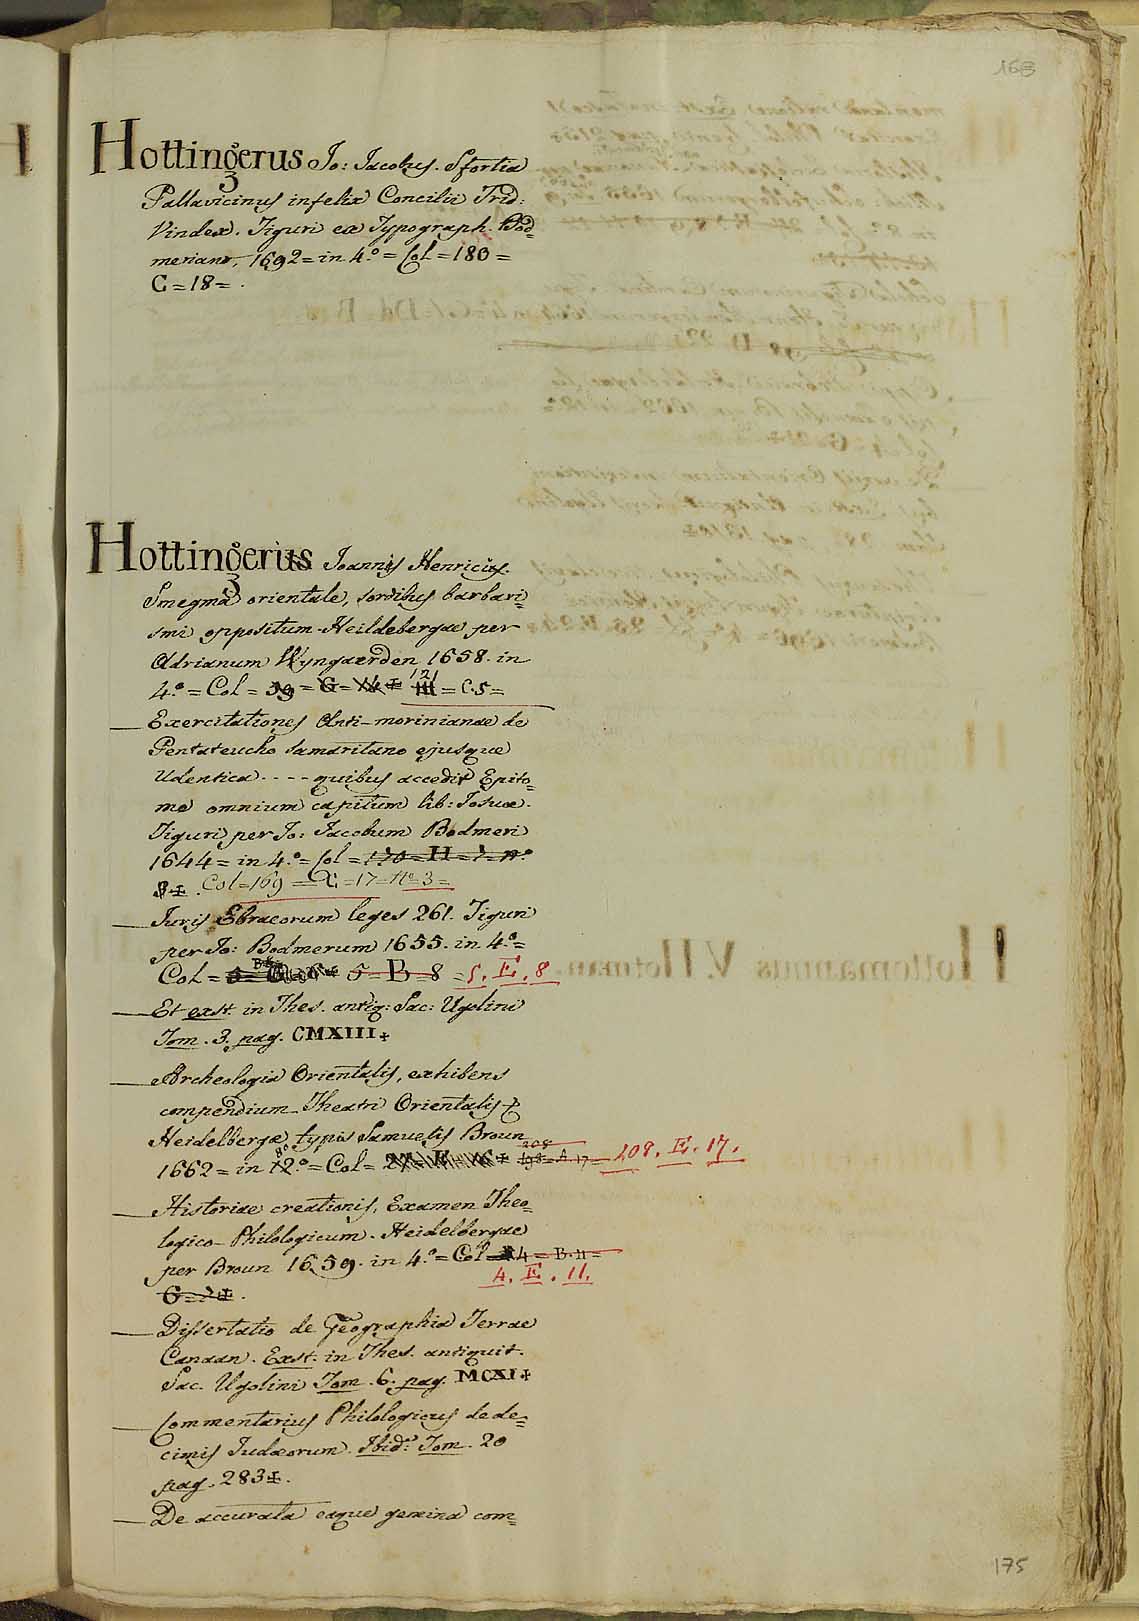 168
Hottingerus Jo: Jacobus. Sfortia
Pallavicinus infelix Concilii Trid:
Vindex. Tiguri ex Typograph. Bod=
meriano, 1692 = in 4.º = Col = 180 =
C = 18 = .
Hottingerius Joannis Henricus.
Smegma orientale, sordibus barbari=
smi oppositum. Heildebergae per
Adrianum Wyngaerden 1658. in
4.º = Col = 39 = G = 14 ± 121 = C. 5 =
Exercitationes Anti-morinianae de
Pentateucho samaritano ejusque
Udentica .... quibus accedit Epito=
me omnium capitum lib: Josuae.
Tiguri per Jo: Jacobum Bodmeri
1644 = in 4.º = Col = 170 = H = 7 = nº
8 ±. Col = 169 = C = 17 = Nº 3 =
Juris Ebraeorum leges 261. Tiguri
per Jo: Bodmerum 1655. in 4.º =
Col = 5 = B = 8 = 5. E. 8
Et exst. in Thes. antiq: Sac: Ugolini
Tom. 3. pag. CMXIII ±
Archeologia Orientalis, exhibens
compendium Theatri Orientalis
Heidelbergae, typis Samuelis Broun
1662 = in 12.º 8º = Col = 198 = A. 17 = 208 208. E. 17.
Historiae creationis, Examen Theo=
logico-Philologicum. Heidelbergae
per Broun 1659. in 4.º = Col = 4 = B. 11 =
4. E. 11.
G = 7 ± .
Dissertatio de Geographia Terrae
Canaan. Exst. in Thes. antiquit.
Sac. Ugolini Tom. 6. pag. MCXI ±
Commentarius Philologicus de de=
cimis Judaeorum. Ibid: Tom. 20
pag. 283 ±.
De accurata eaque genuina com=
175